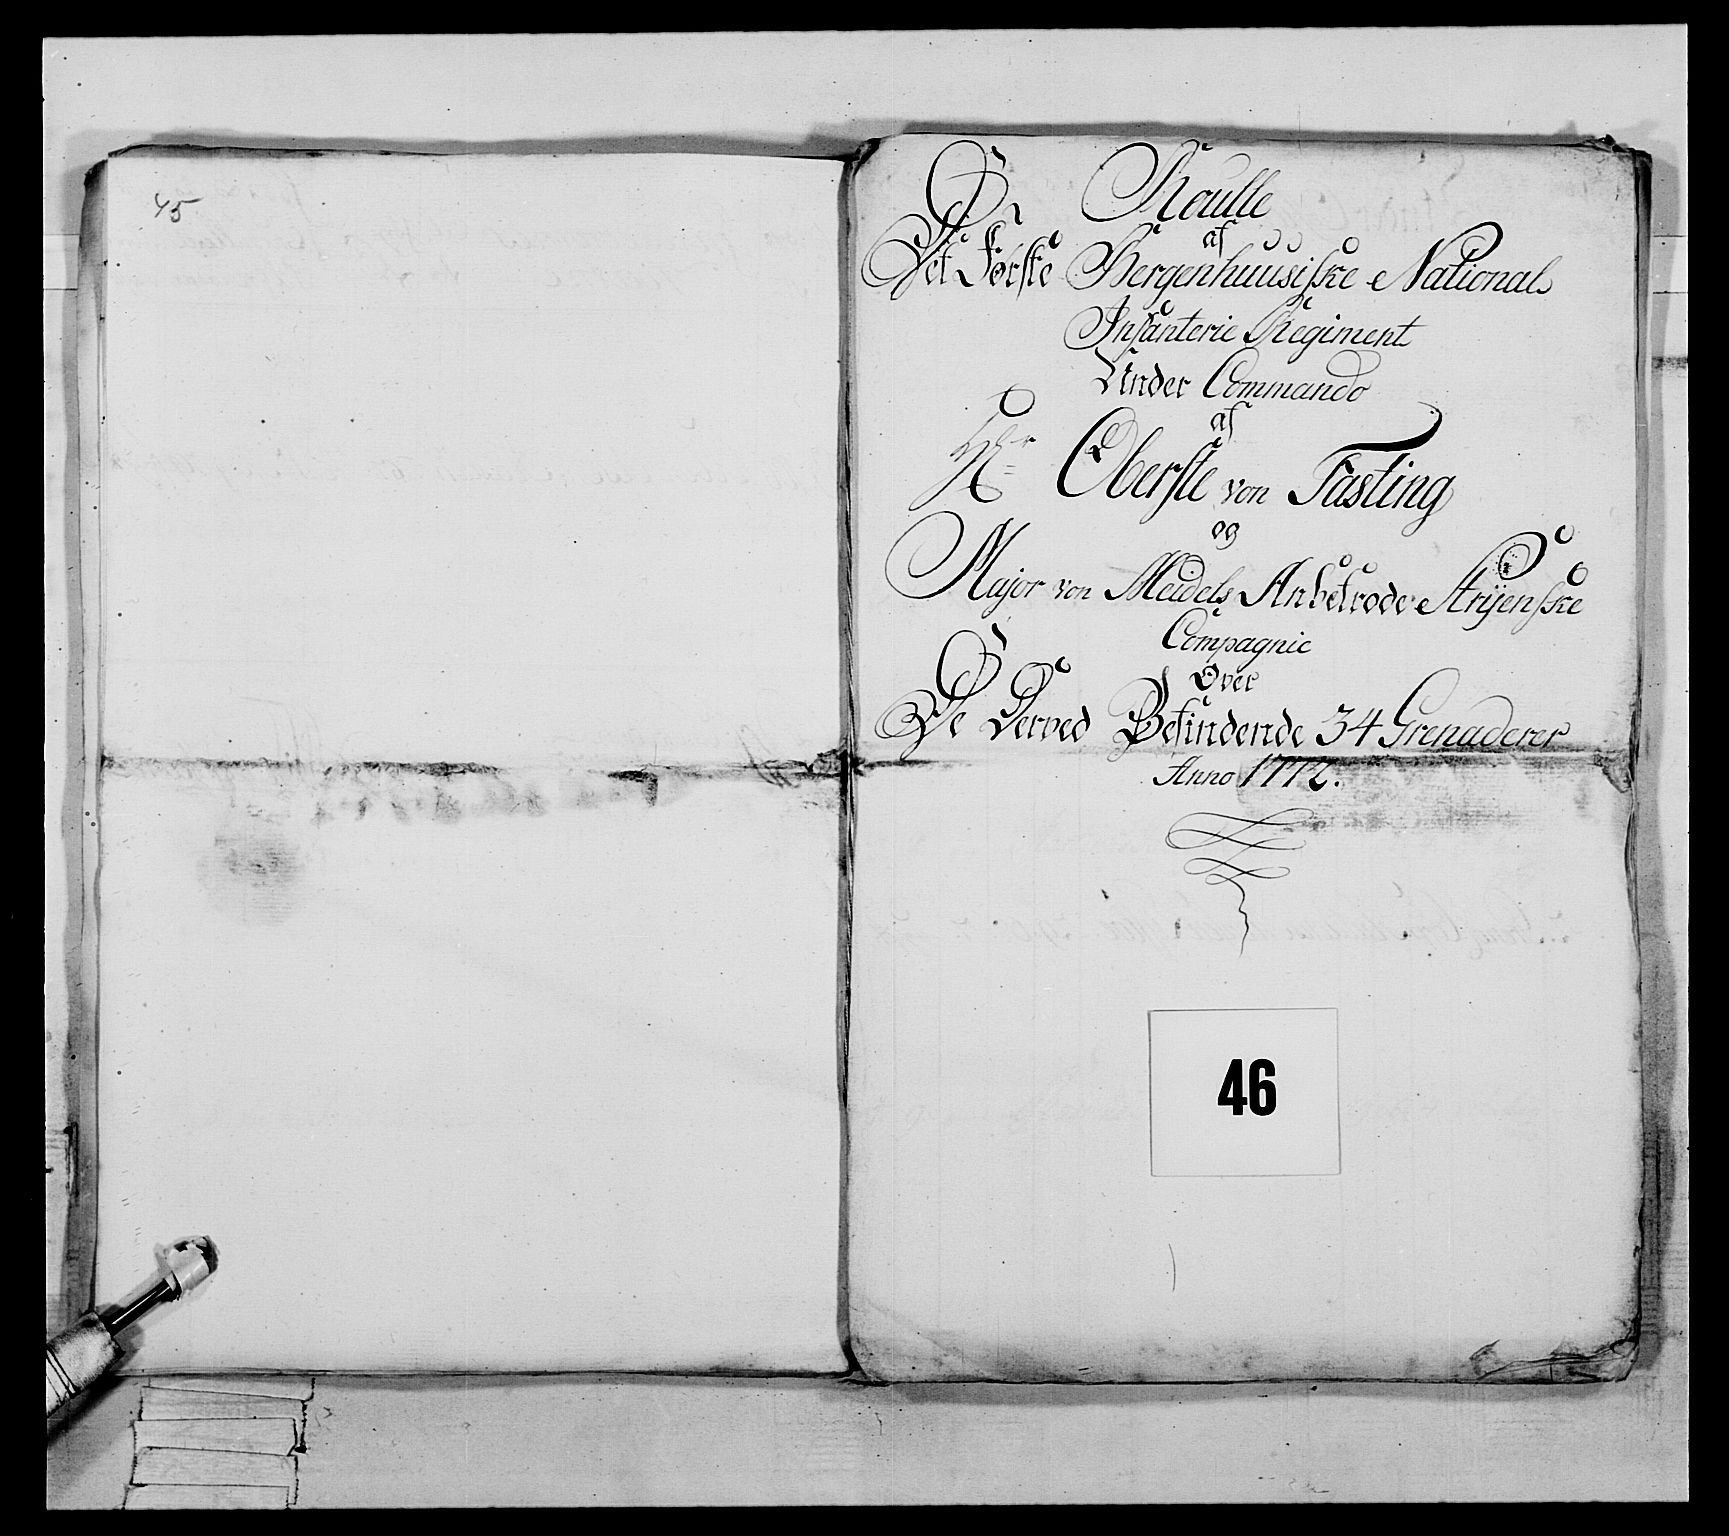 45
Roulle
af
Det Første Bergenhuusiske National
Infanterie Regiment
Under Commando
af
Hr Oberste von Fasting
og
Major von Meidels Anbetrode Stryenske
Compagnie
Over
De Derved Befindende 34 Grenaderer
Anno 1772.
46